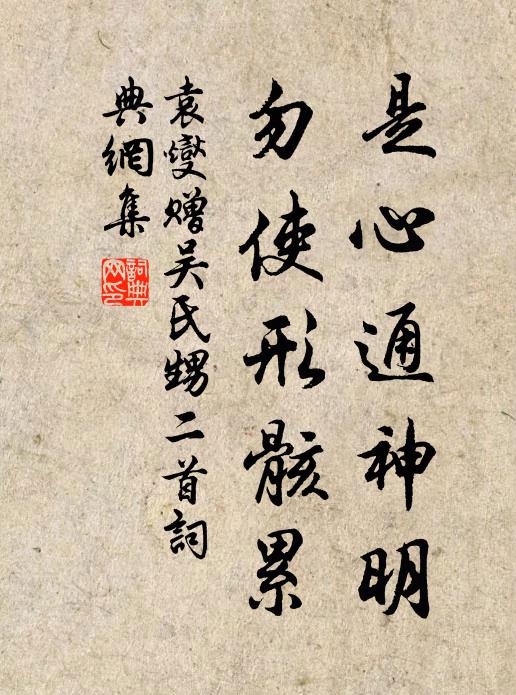 是心通神明
勿使形骸累
袁燮贈吴氏甥二首詞
典網集
詞典
网印